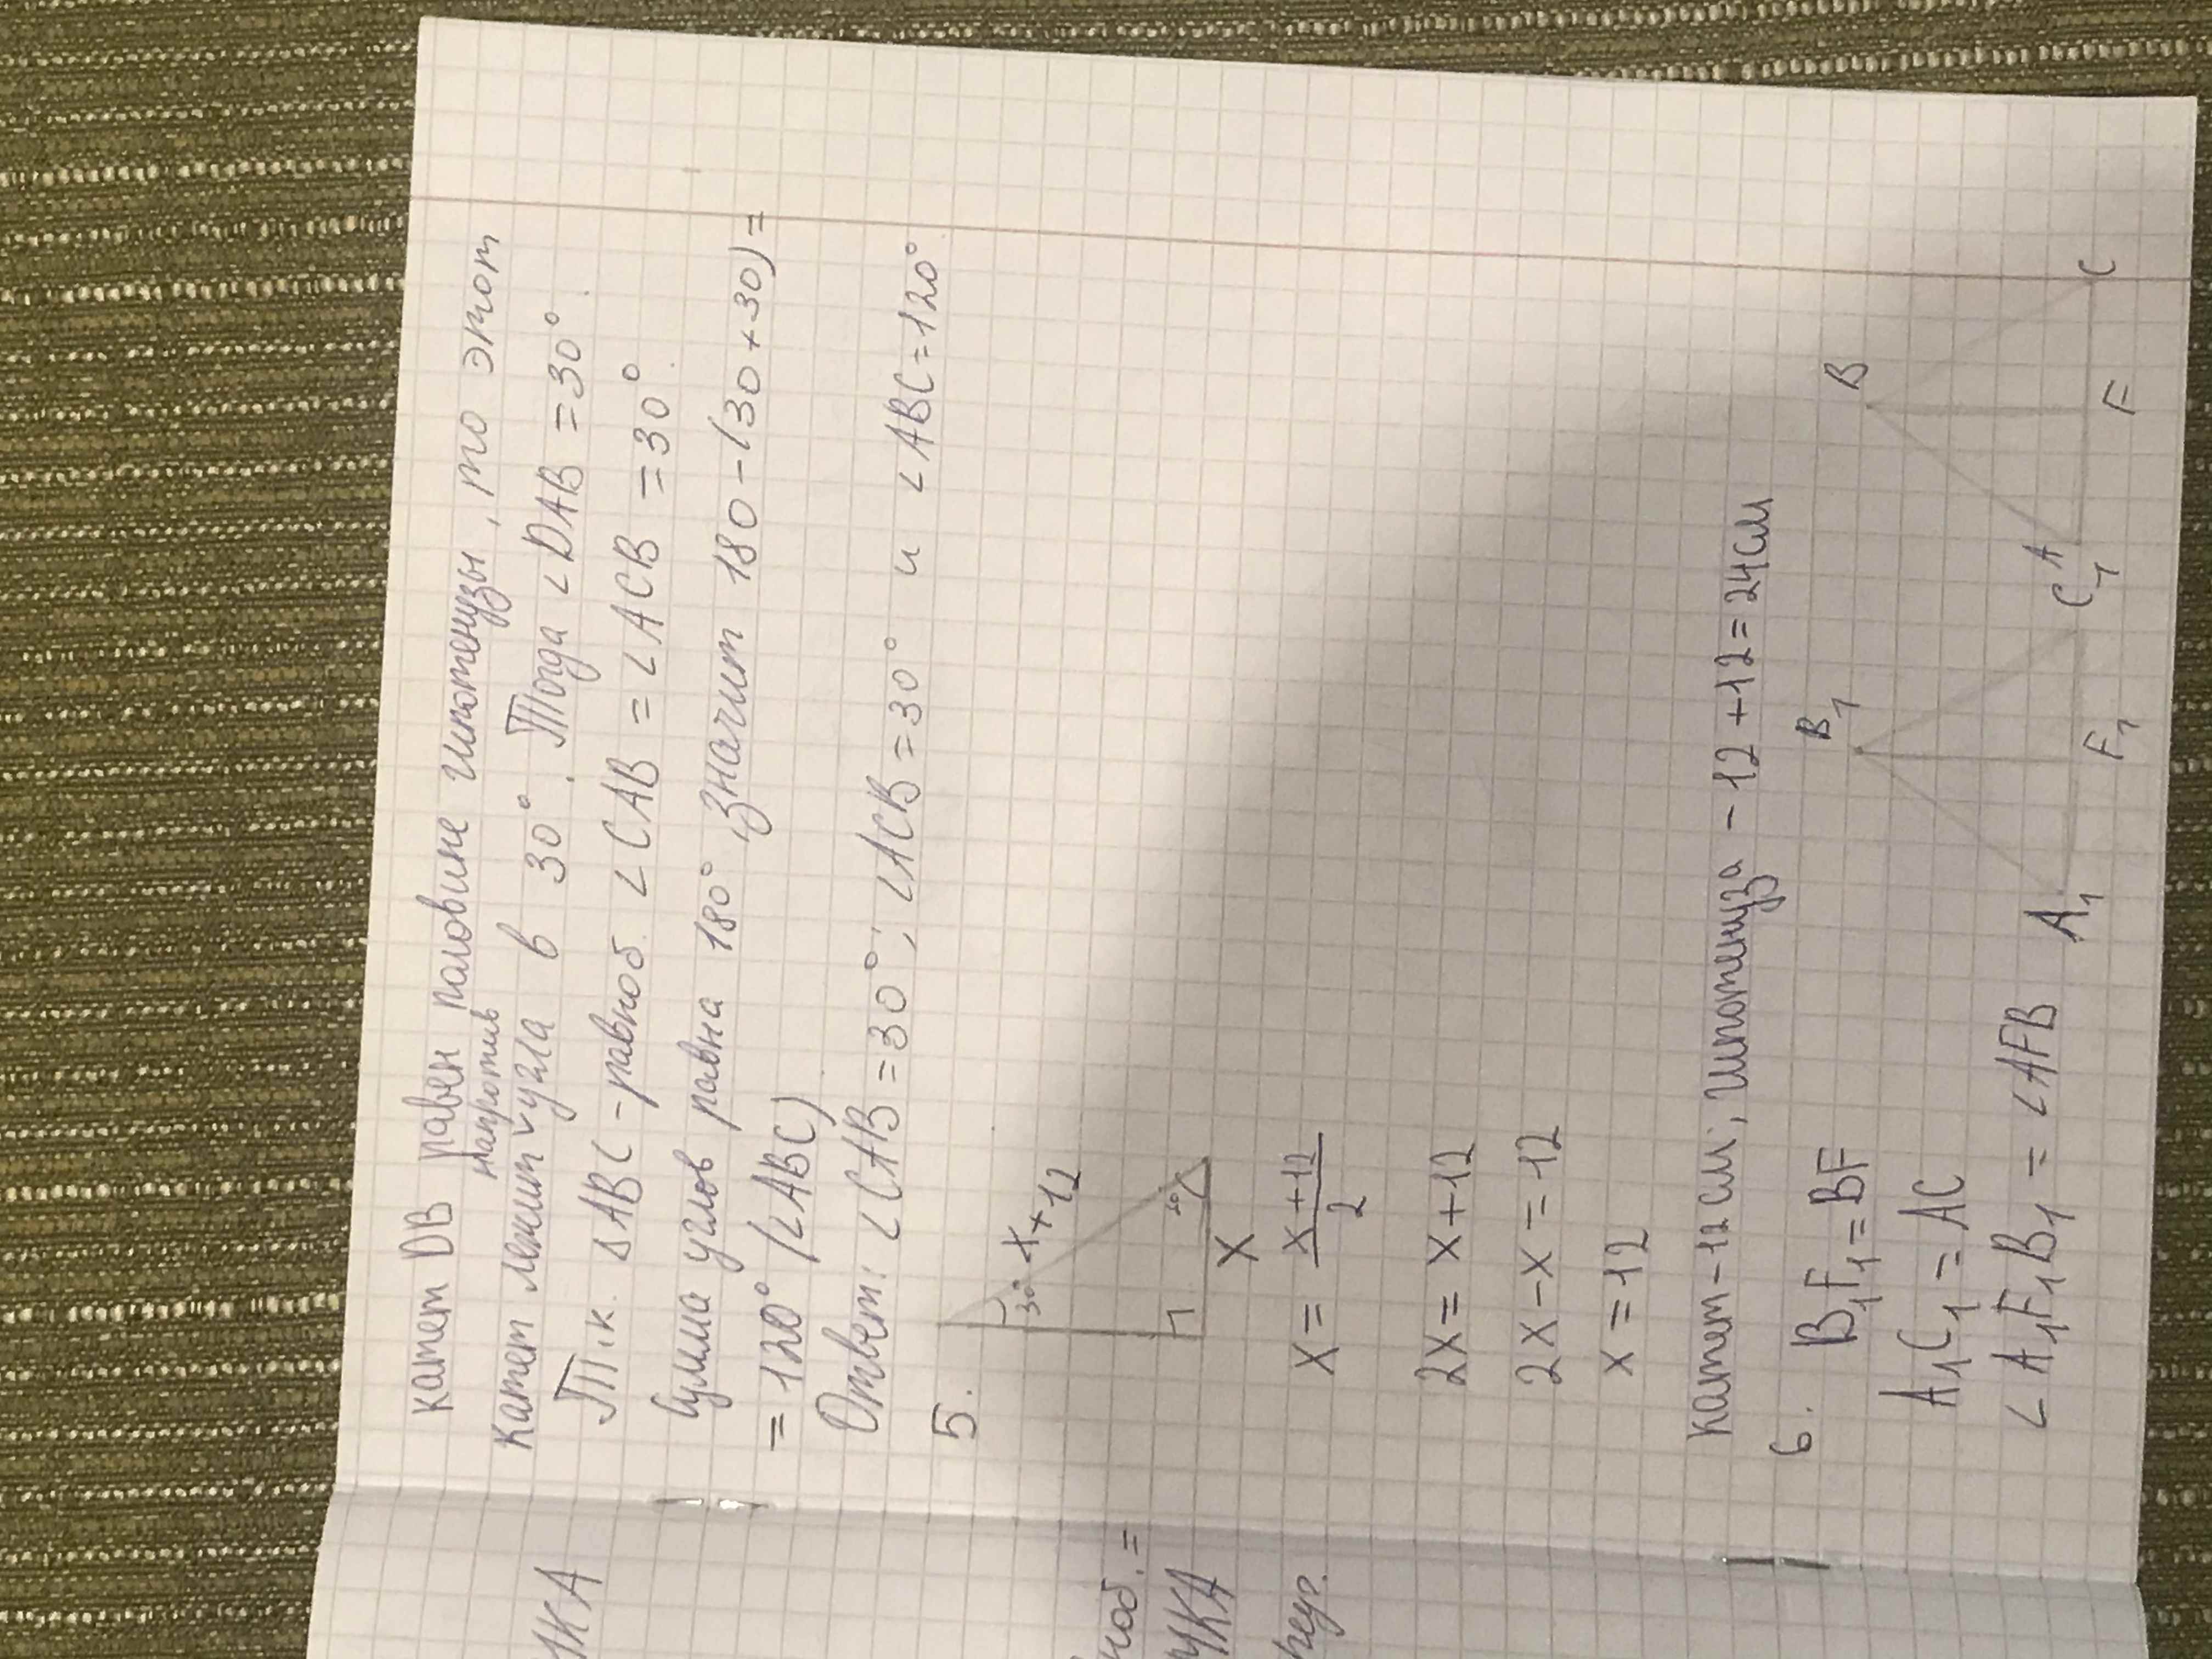 катет DB равен половине гипотенузы, то этот
напротив
катет лежит ˅ угла в 30°. Тогда ∠DAB = 30°.
Т.к. ΔABC - равноб. ∠CAB = ∠ACB = 30°.
Сумма углов равна 180°, значит 180-(30+30)=
= 120° (∠ABC)
Ответ: ∠CAB = 30°; ∠ACB = 30° и ∠ABC = 120°
5.
30°
x+12
1
x
x = (x+12)/2
2x = x+12
2x-x = 12
x = 12
Катет-12см; Гипотенуза - 12+12=24см
6.
B₁F₁ = BF
A₁C₁ = AC
∠A₁F₁B₁ = ∠AFB
B₁
A₁
F₁
C₁
B
A
F
C
ЧКА
ноб. =
ЧКА